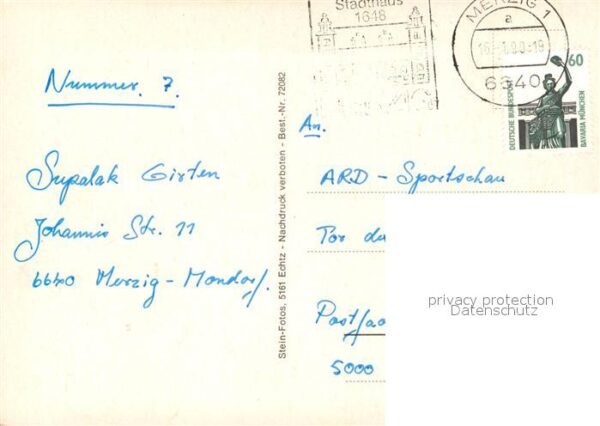 Stadthaus
1648
MERZIG 1
a
6640
60
DEUTSCHE BUNDESPOST
BAVARIA MÜNCHEN
Nummer. 7.
Supalak Girten
Johannis Str. 11
6640 Merzig-Mondorf.
Stein-Fotos, 5161 Echtz - Nachdruck verboten - Best.-Nr. 72082
An.
ARD - Sportschau
Tor de
Postfac
5000
privacy protection
Datenschutz